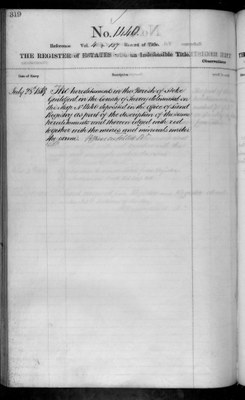 319
No. 1440.
Reference Vol. 4 p. 187 Record of Title.
THE REGISTER of ESTATES with an Indefeasible Title.
Date of Entry
Description
Observations
The hereditaments in the Parish of Stoke
Guildford in the County of Surrey delineated on
the Map No. 1440 deposited in the office of Land
Registry as part of the description of the same
hereditaments and thereon edged with red
together with the mines and minerals under
the same.